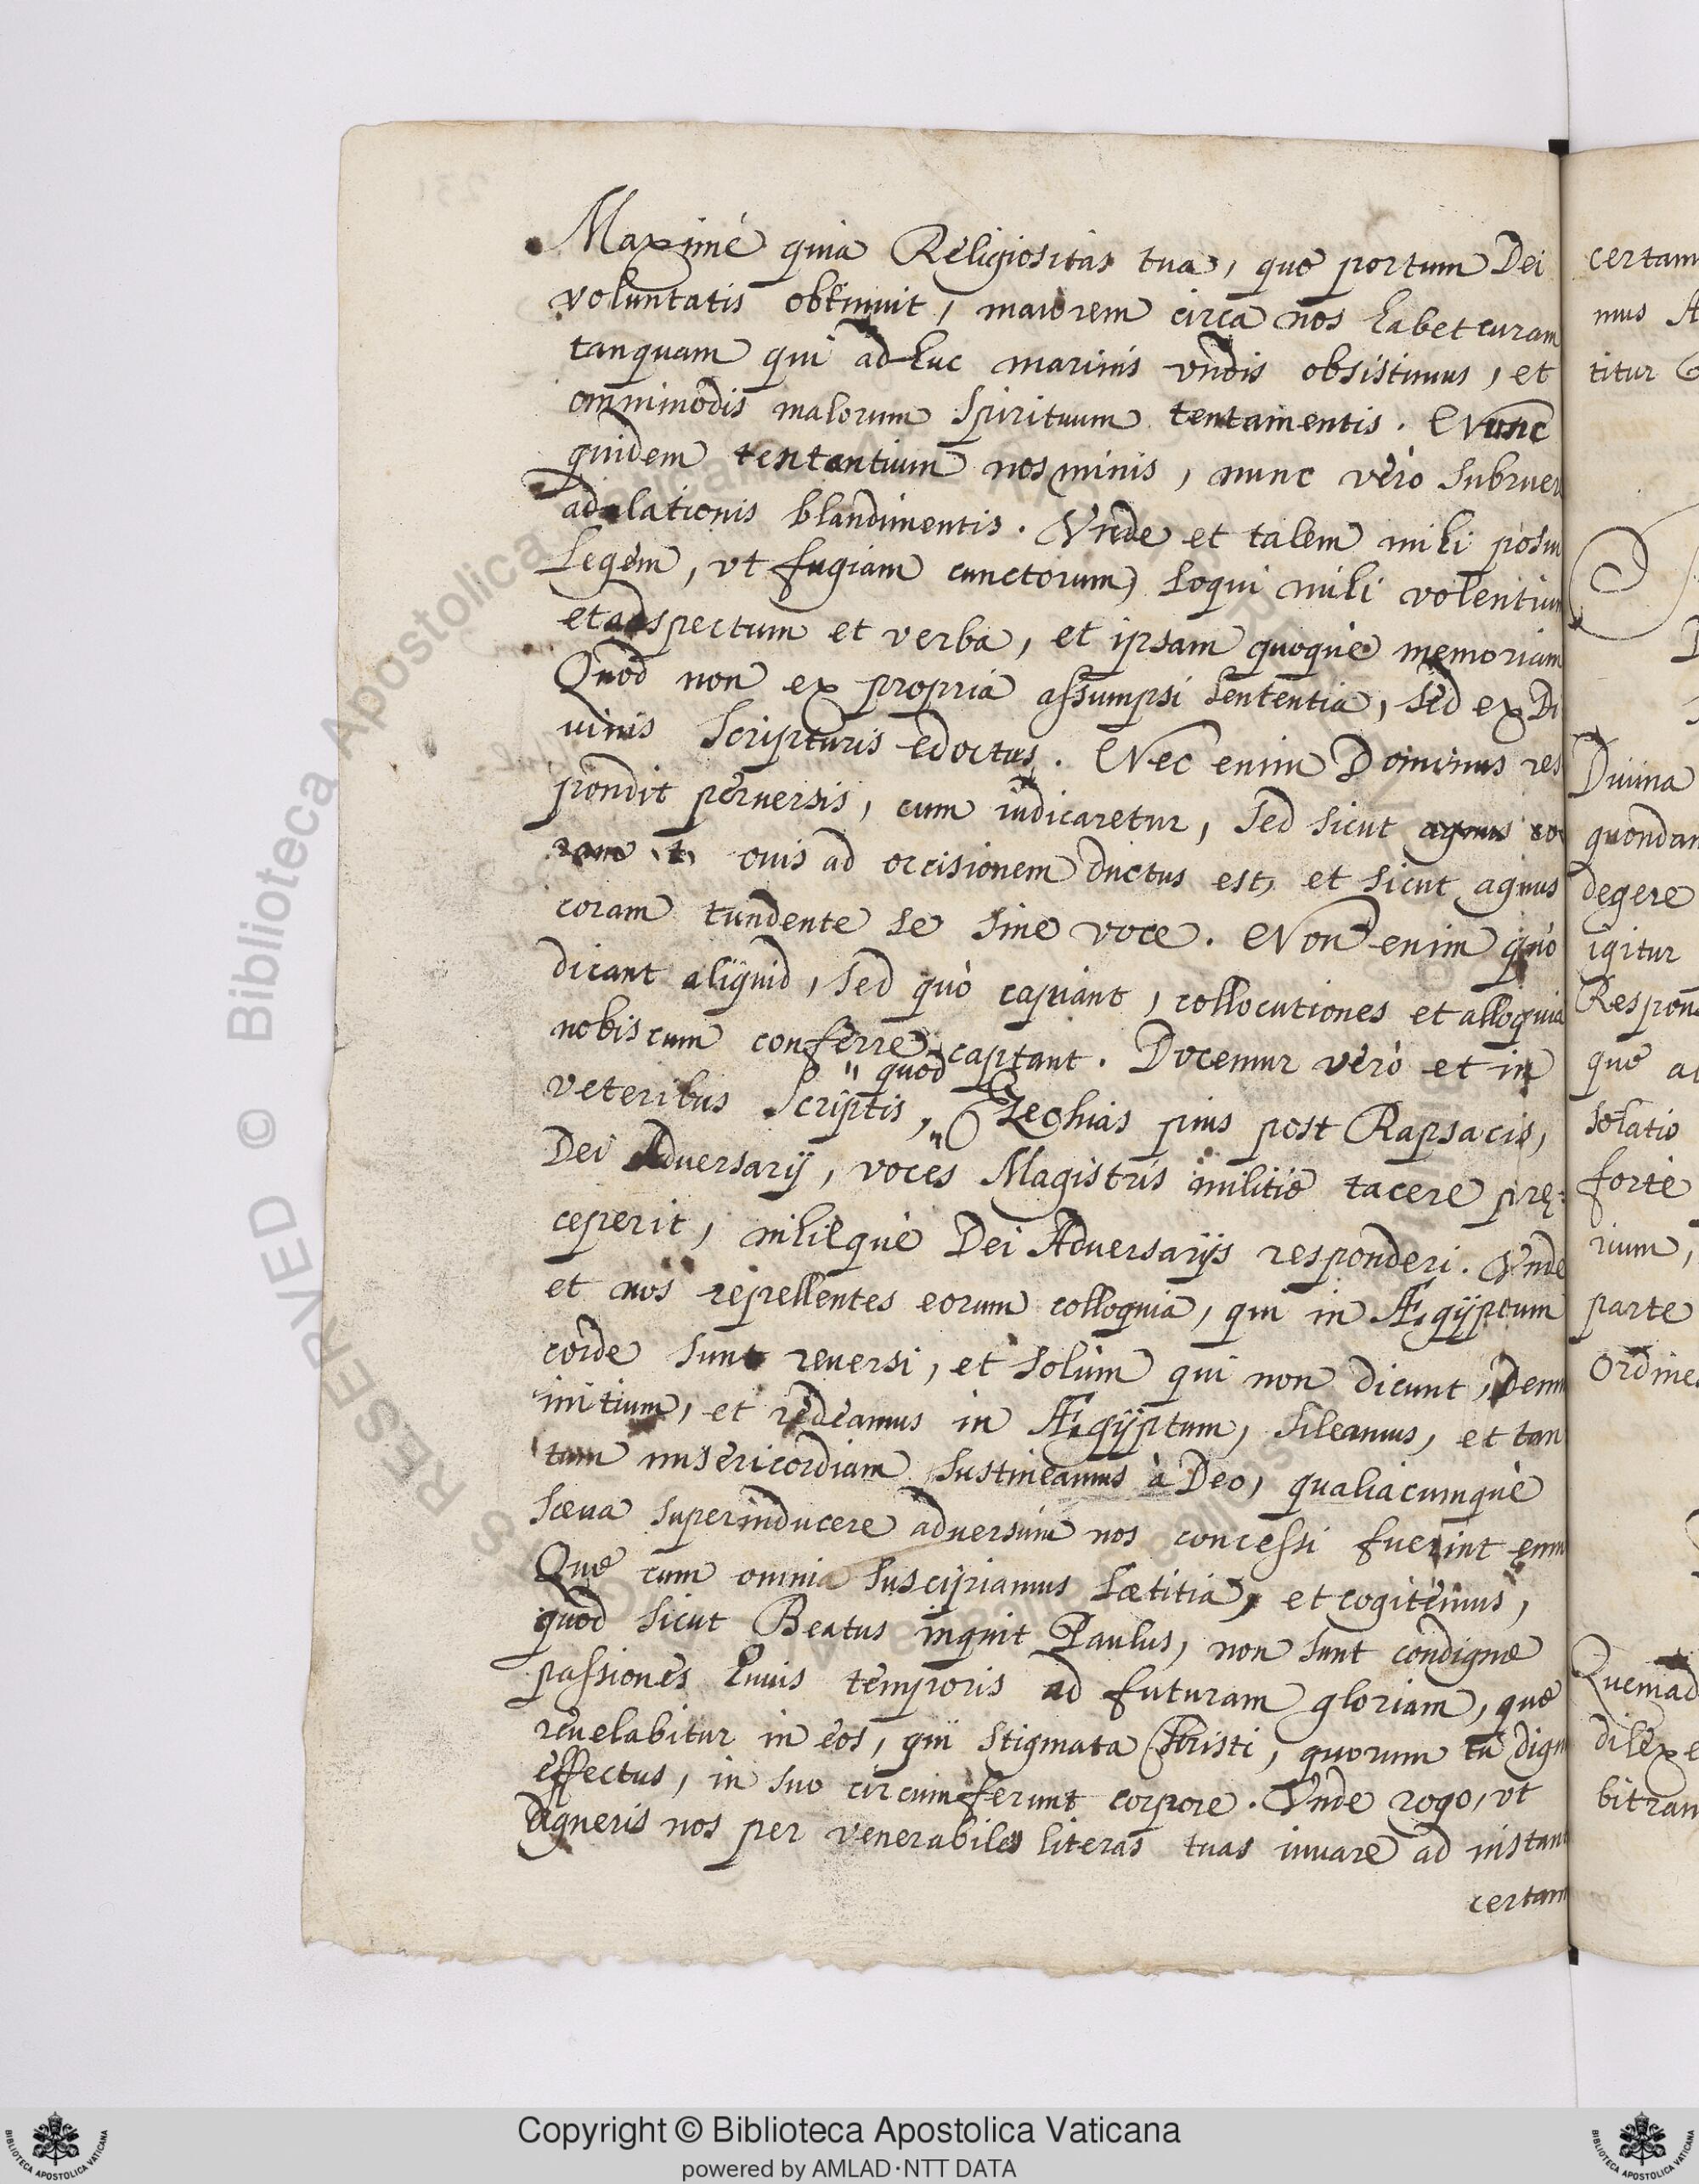 Maximè quia Religiositas tua, quę portum Dei
voluntatis obtinuit, maiorem circa nos habet curam
tanquam qui adhuc marinis vndis obsistimus, et
omnimodis malorum Spirituum tentamentis. Nunc
quidem tentantium nos minis, nunc verò subruer
adulationis blandimentis. Vnde et talem mihi posui
Legem, vt fugiam cunctorum loqui mihi volentium
et adspectum et verba, et ipsam quoquè memoriam
Quod non ex propria assumpsi sententia, sed ex Di
uinis Scripturis edoctus. Nec enim Dominus res
pondit peruersis, cum iudicaretur, sed sicut agnus co
ram t. ouis ad occisionem ductus est, et sicut agnus
coram tundente se sine voce. Non enim quò
dicant aliquid, sed quò capiant, collocutiones et alloquia
nobiscum conferre captant. Docemur verò et in
veteribus Scriptis, " quod Ezechias pius post Rapsacis,
Dei Adversarij, voces Magistris militię tacere pręː
ceperit, nihilquè Dei Adversarijs responderi. Vnde
et nos repellentes eorum colloquia, qui in Ægÿptum
corde sunt reuersi, et solùm qui non dicunt, Demu
initium, et redeamus in Ægÿptum, sileamus, et tan
tam misericordiam sustineamus à Deo, qualiacumquè
sæua superinducere adversùm nos concessi fuerint enim
Quę cum omnia suscipiamus Lætitia, et cogitemus,
quod sicut Beatus inquit Paulus, non sunt condignę
passiones huius temporis ad futuram gloriam, quę
reuelabitur in eos, qui stigmata Christi, quorum tu dign
effectus, in suo circumferunt corpore. Vnde rogo, vt
digneris nos per venerabiles literas tuas iuuare ad instant
certam
certam
mus A
titur
Diuina
quondam
degere
igitur
Respon
quę a
solatio
fortè
rium,
parte
Ordine
Quemad
dilexe
bitran
Copyright © Biblioteca Apostolica Vaticana
powered by AMLAD·NTT DATA